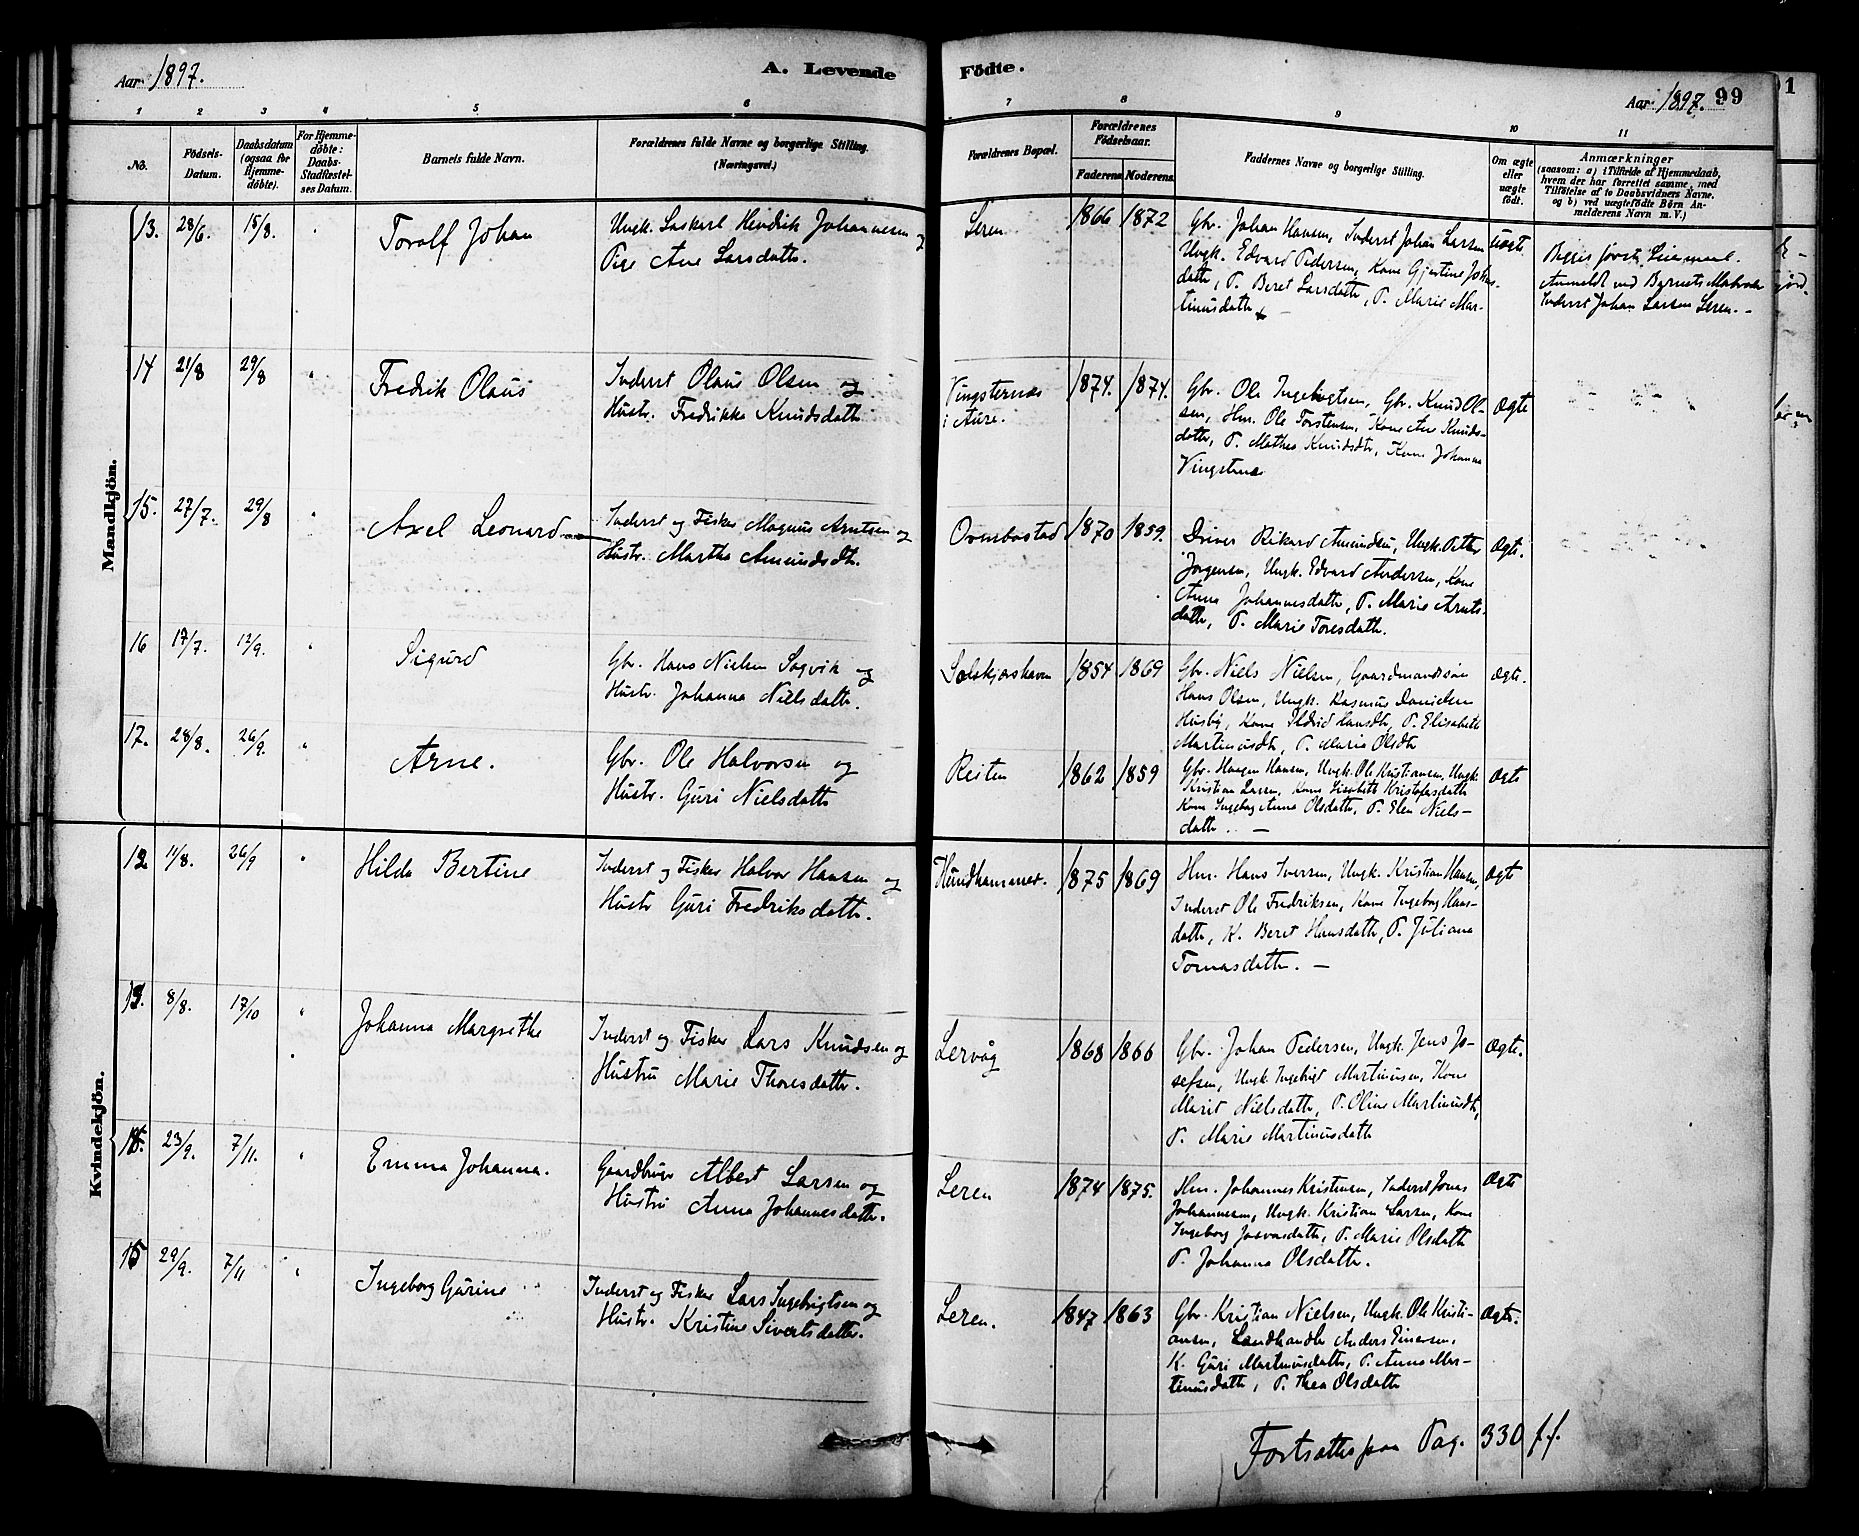 Aar 1897.
A. Levende Födte.
Aar 1897. 99
1 2 3 4 5 6 7 8 9 10 11
No.
Födsels-Datum.
Daabsdatum (ogsaa for Hjemmedöbte).
For Hjemmedöbte: Daabs-Stadfæstelses Datum.
Barnets fulde Navn.
Forældrenes fulde Navne og borgerlige Stilling. (Næringsvei.)
Forældrenes Bopæl.
Forældrenes Födselsaar.
Faderens Moderens
Faddernes Navne og borgerlige Stilling.
Om ægte eller uægte födt.
Anmærkninger
(saasom: a) i Tilfælde af Hjemmedaab,
hvem der har forrettet samme, med
Tilföielse af to Daabsvidners Navne.
og b) ved uægtefödte Börn An-
melderens Navn m.V.)
Mandkjön.
13. 28/6. 15/8. "
Torolf Johan
Ungk. Laskarl Hendrik Johannesen og
Pige Ane Larsdatter.
Leren
1866 1872
Gbr. Johan Hansen, Inderst Johan Larsen
Ungk. Edvard Pedersen, Kone Gjertine Johns-
datter, P. Beret Larsdatter, P. Marie Mar-
tinusdatter
uægte.
Begges første Leiermaal.
Anmeldt ved Barnets Morfader
Inderst Johan Larsen Leren. -
14 21/8 29/8 "
Fredrik Olaus
Inderst Olaus Olsen og
Hustr. Fredrikke Knudsdatter
Vingsternes
i Aure.
1874. 1874.
Gbr. Ole Ingebrigtsen, Gbr. Knud Ol-
sen, Hm. Ole Torstensen, Kone Ane Knuds-
datter, P. Mathea Knudsdtr, Kone Johanna
Vingsternes
Ægte
15. 27/7. 29/8 "
Axel Leonard
Inderst og Fisker Magnus Arntsen og
Hustr. Martha Amundsdt.
Ovenbostad
1870 1859.
Driver Rikard Amundsen, Ungk. Petter
Jørgensen, Ungk. Edvard Andersen, Kone
Anna Johannesdatter, P. Marie Arnts-
datter, P. Marie Toresdatter.
Ægte.
16 17/7. 12/9. "
Sigurd
Gbr. Hans Nielsen Sagvik og
Hustr. Johanna Nielsdatter.
Solskjærshavn
1854 1869
Gbr. Niels Nielsen, Gaardmandssøn
Hans Olsen, Ungk. Rasmus Danielsen
Husby, Kone Ildrid Hansdtr, P. Elisabeth
Martinusdtr, P. Marie Olsdtr
Ægte.
17. 28/8. 26/9. "
Arne.
Gbr. Ole Halvorsen og
Hustr. Guri Nielsdatter
Reiten
1862 1859
Gbr. Haagen Hansen, Ungk. Ole Kristiansen, Ungk.
Kristian Larsen, Kone Lisabeth Kristofersdatter
Kone Ingeborg Anna Olsdatter, P. Elen Niels-
datter. -
Ægte
Kvindekjön.
12 11/8. 26/9 "
Hilda Bertine
Inderst og Fisker Halvor Hansen og
Hustr Guri Fredriksdatter.
Hundhammer.
1875 1869
Hm. Hans Iversen, Ungk. Kristian Hansen,
Inderst Ole Fredriksen, Kone Ingeborg Hans-
datter, K. Beret Hansdatter, P. Juliana
Tomasdatter. -
Ægte
13. 8/8. 17/10 "
Johanna Margrethe
Inderst og Fisker Lars Knudsen og
Hustru Marie Thoresdatter.
Lervåg
1868 1866
Gbr. Johan Pedersen, Ungk. Jens Jo-
sefsen, Ungk. Ingebrigt Martinusen, Kone
Marit Nielsdatter, P. Oline Martinusdtr,
P. Marie Martinusdatter
Ægte.
23/9. 7/11. "
Emma Johanna.
Gaardbruger Albert Larsen og
Hustru Anna Johannesdatter.
Leren
1874 1875.
Hm. Johannes Kristensen, Inderst Jonas
Johannesen, Ungk. Kristian Larsen, Kone
Ingeborg Josvasdatter, P. Marie Olsdatter
P. Johanna Olsdatter.
Ægte
15 29/9. 7/11 "
Ingeborg Gurine
Inderst og Fisker Lars Ingebrigtsen og
Hustr. Kristine Sivertsdatter.
Leren.
1847 1863
Gbr. Kristian Nielsen, Ungk. Ole Kristi-
ansen, Landhandler Anders Einersen.
K. Guri Martinusdatter, P. Anna Mar-
tinusdatter, P. Thea Olsdatter
Ægte.
Fortsættes paa Pag. 330 ff.